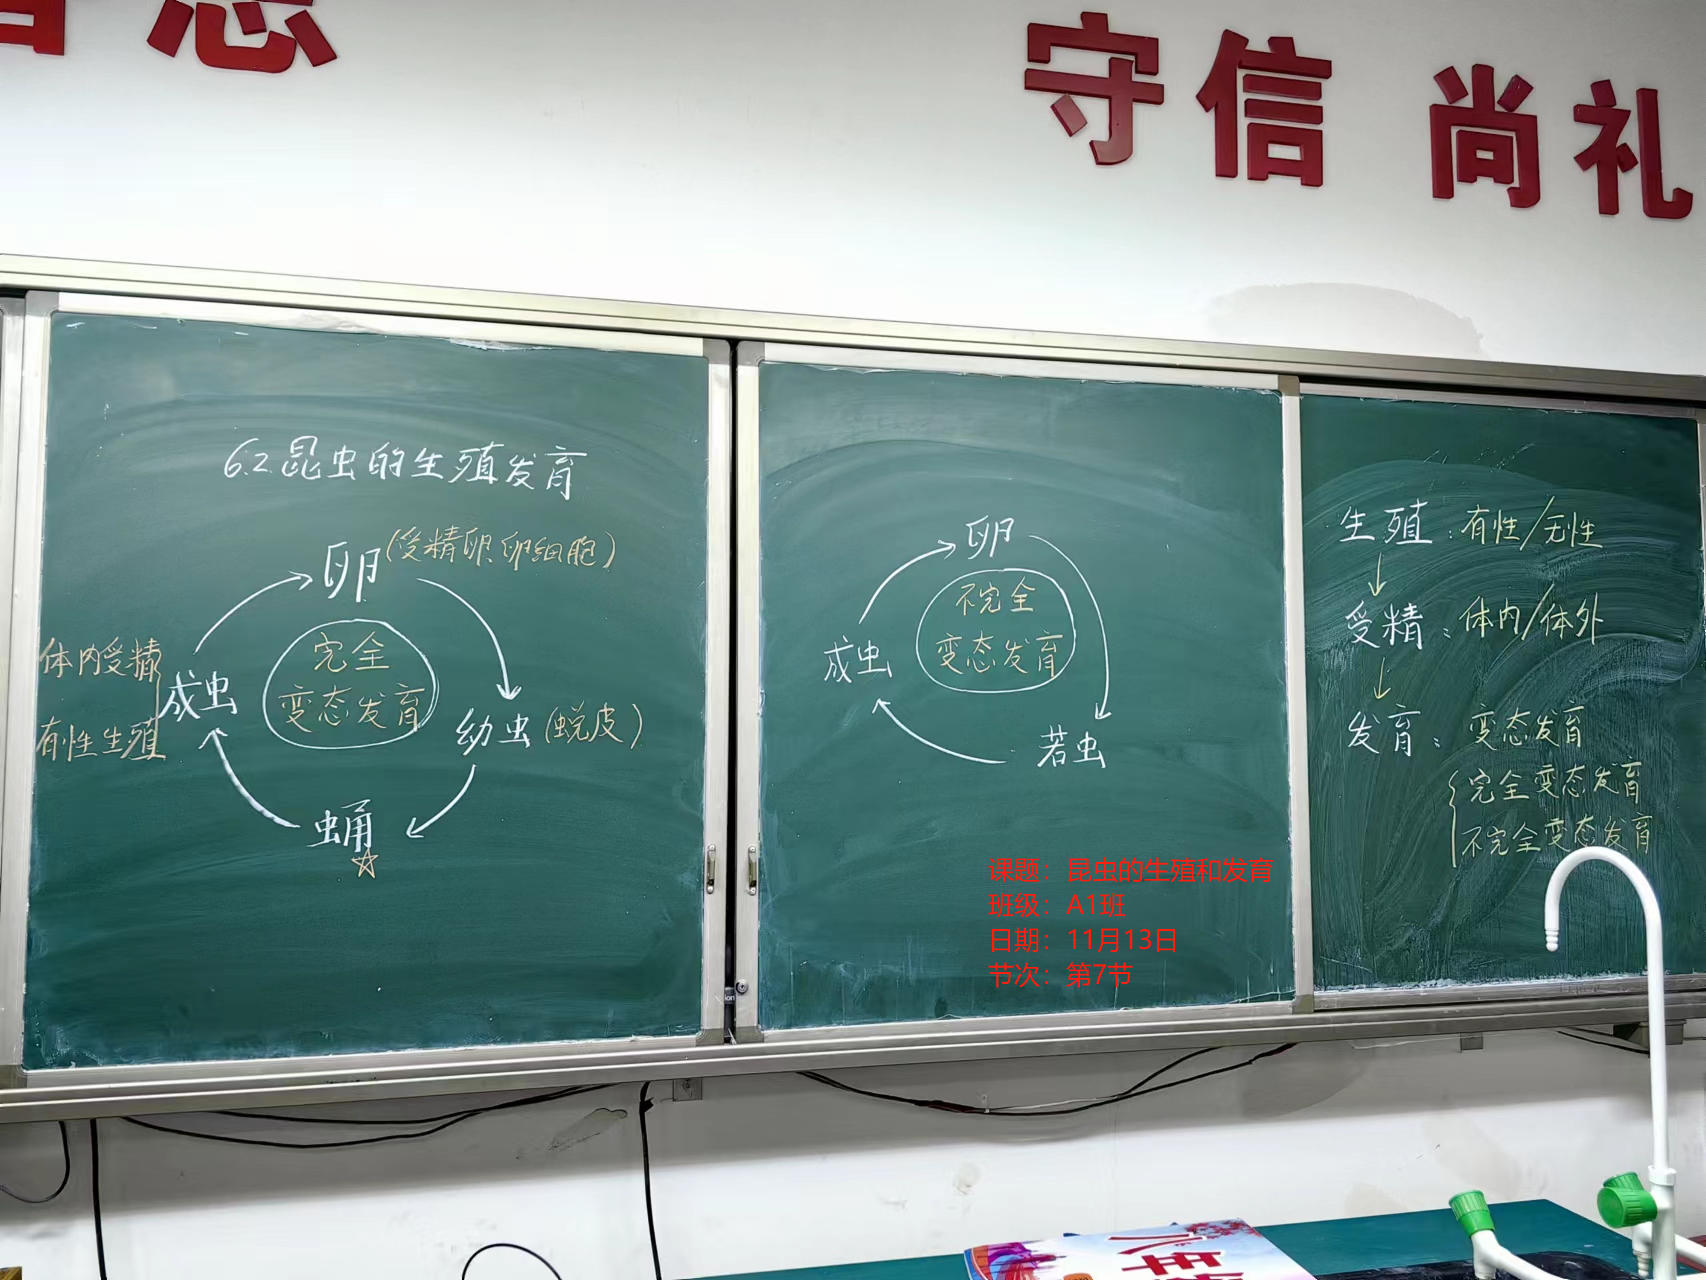 守信 尚礼
6.2 昆虫的生殖发育
卵(受精卵、卵细胞)
体内受精
有性生殖
成虫
完全
变态发育
幼虫(蜕皮)
蛹
☆
卵
不完全
变态发育
成虫
若虫
生殖:有性/无性
受精:体内/体外
发育:变态发育
完全变态发育
不完全变态发育
课题:昆虫的生殖和发育
班级:A1班
日期:11月13日
节次:第7节